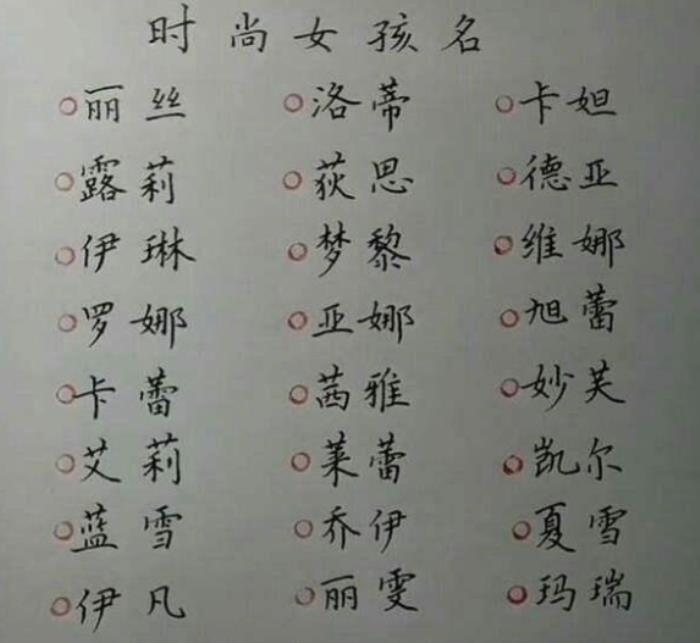 时尚女孩名
丽丝 洛蒂 卡妲
露莉 荻思 德亚
伊琳 梦黎 维娜
罗娜 亚娜 旭蕾
卡蕾 茜雅 妙芙
艾莉 莱蕾 凯尔
蓝雪 乔伊 夏雪
伊凡 丽雯 玛瑞